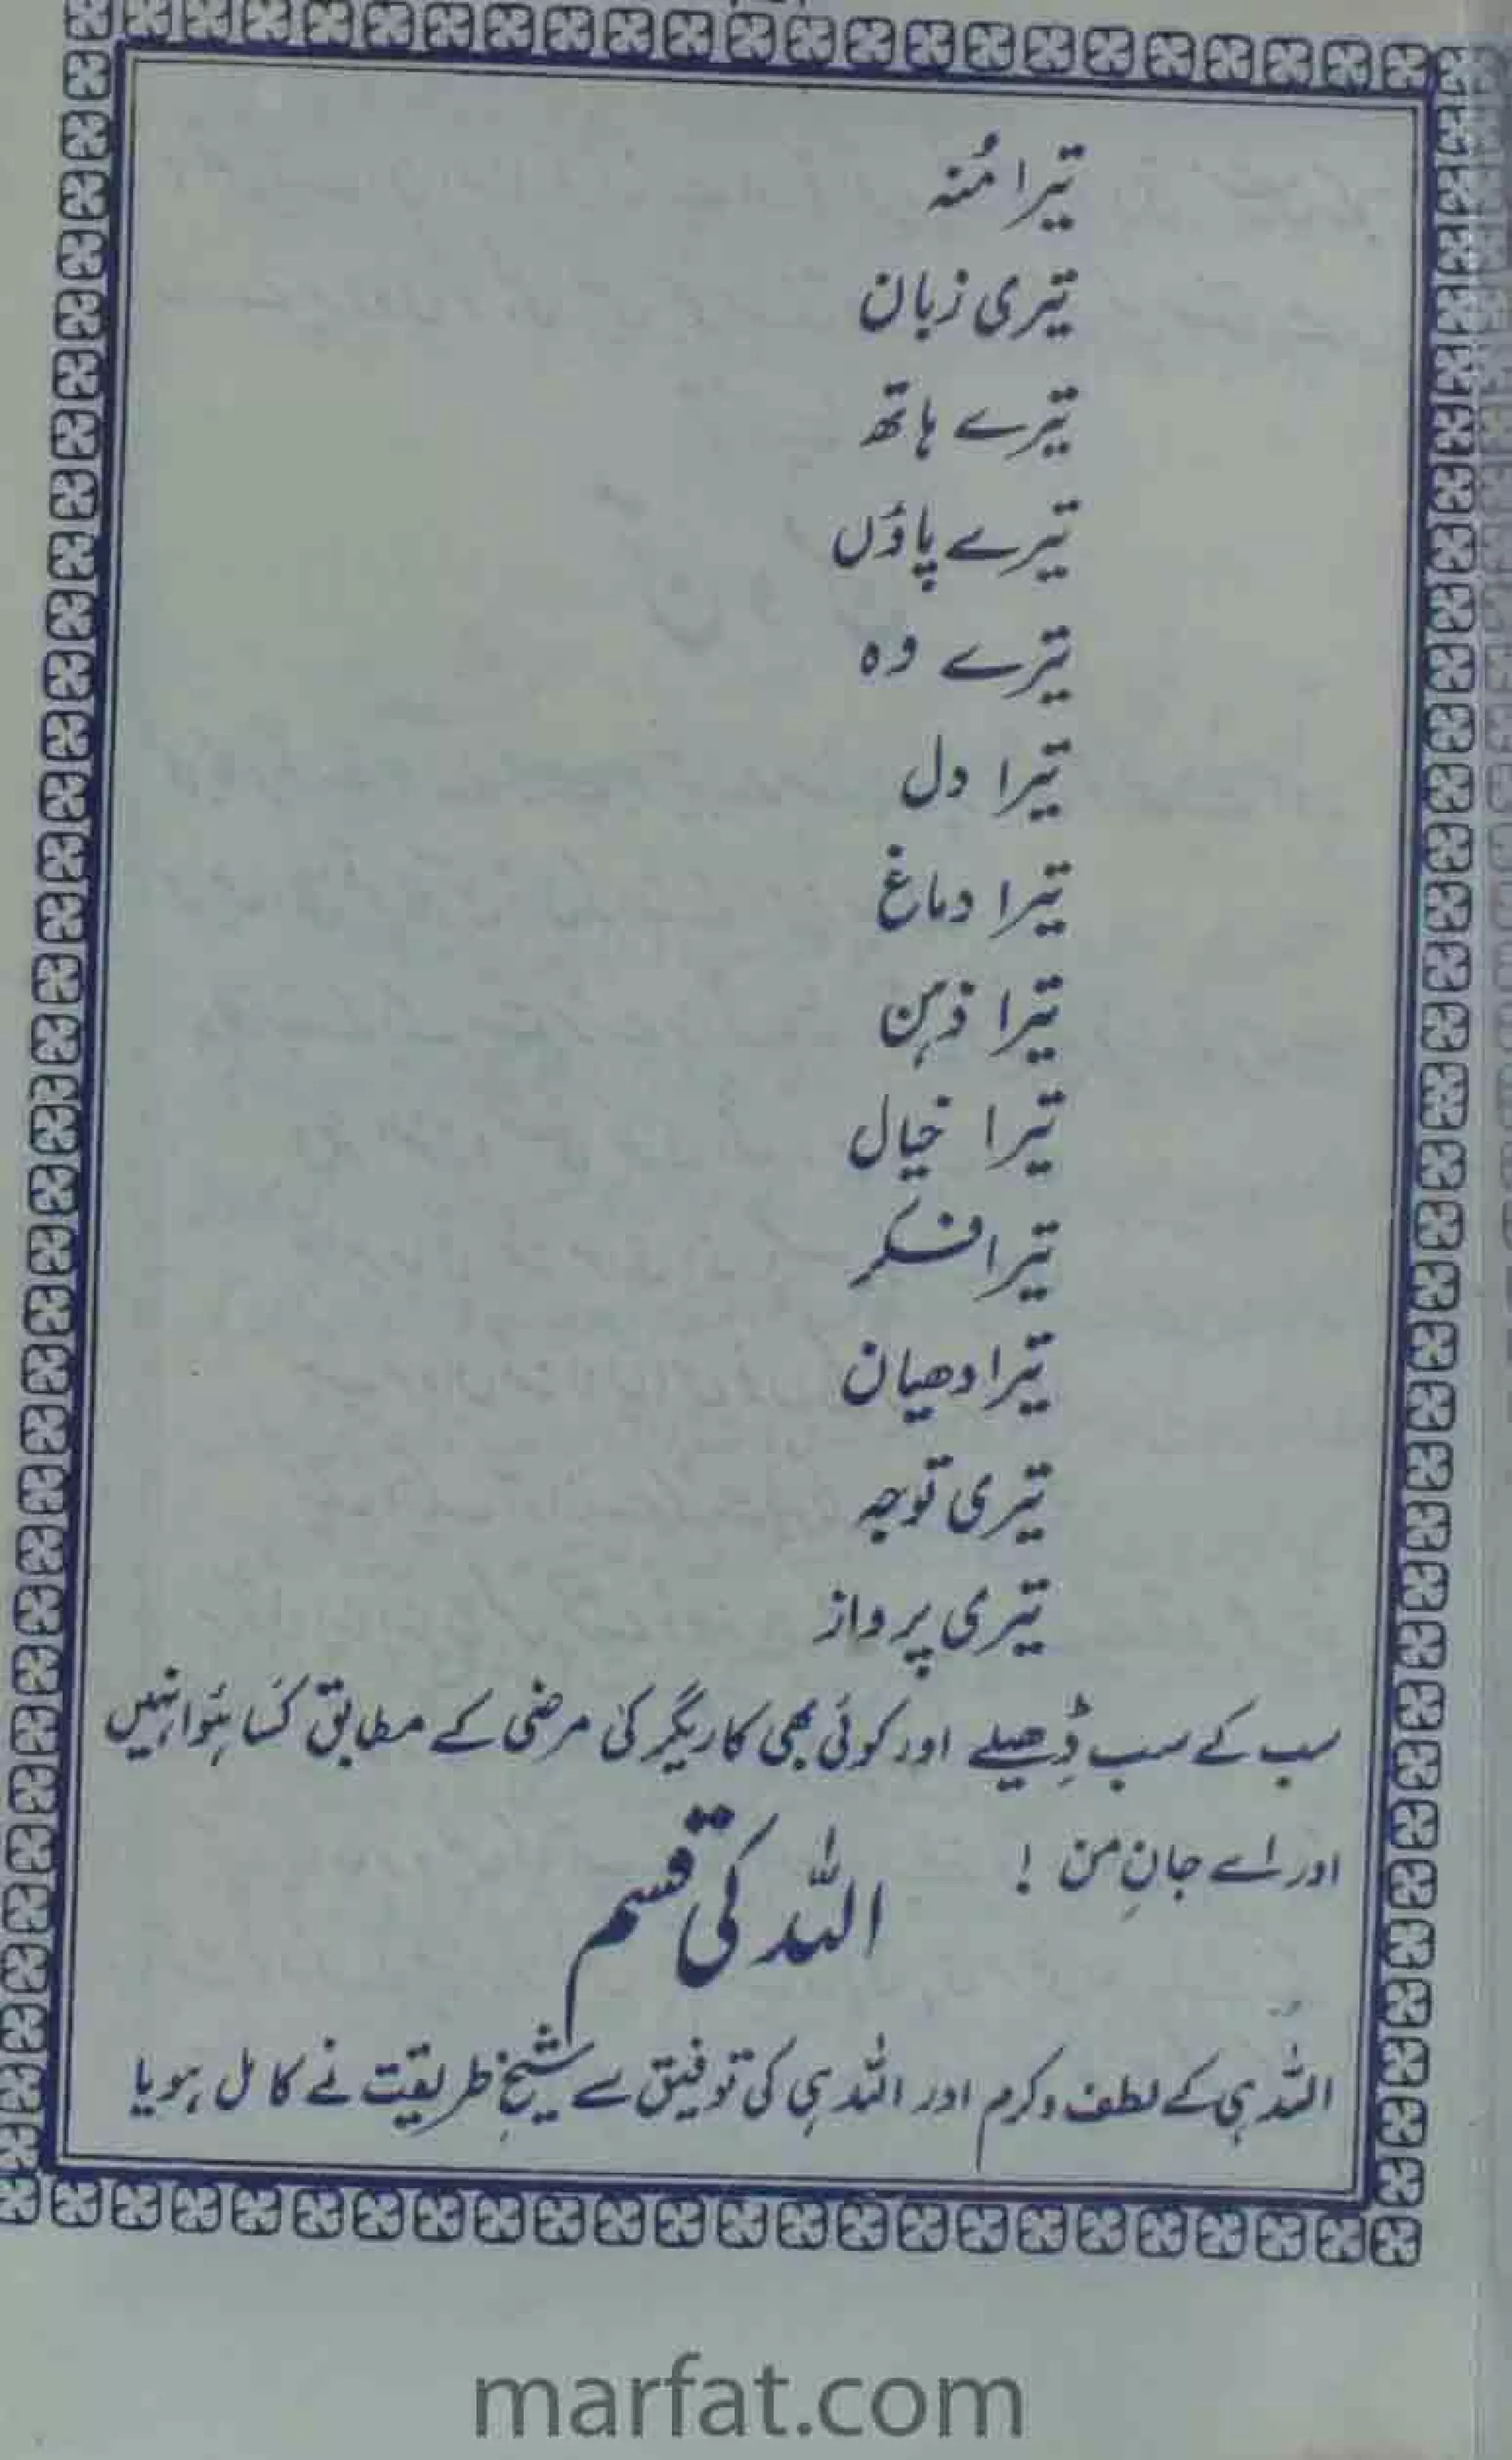 تیرا مُنہ
تیری زبان
تیرے ہاتھ
تیرے پاؤں
تیرے وہ
تیرا دل
تیرا دماغ
تیرا ذہن
تیرا خیال
تیرا فکر
تیرا دھیان
تیری توجہ
تیری پرواز
سب کے سب ڈھیلے اور کوئی بھی کاریگر کی مرضی کے مطابق کَسا ہُوا نہیں
اور اے جانِ من !
اللہ کی قسم
اللہ ہی کے لطف و کرم اور اللہ ہی کی توفیق سے شیخِ طریقت نے کامل ہو یا
marfat.com